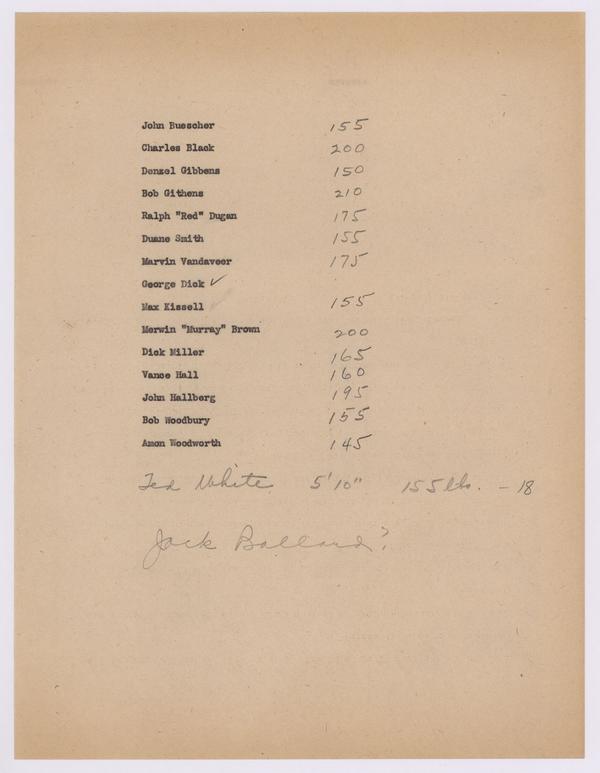 John Buescher 155
Charles Black 200
Denzel Gibbens 150
Bob Githens 210
Ralph "Red" Dugan 175
Duane Smith 155
Marvin Vandaveer 175
George Dick ✓
Max Kissell 155
Merwin "Murray" Brown 200
Dick Miller 165
Vance Hall 160
John Hallberg 195
Bob Woodbury 155
Amon Woodworth 145
Ted White 5'10" 155 lbs. - 18
Jack Ballard?